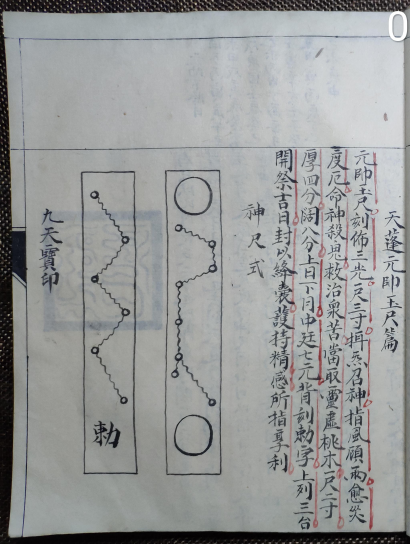 天蓬元帥玉尺篇
元帥玉尺刻佈三光一尺三寸摂炁召神指風願雨愈災
度厄命神殺鬼救治泉苦當取靈虛桃木一尺二寸
厚四分闊八分上日下月中廷七元背刻勅字上列三台
開祭吉日封以絳囊護持精感所指享利
神尺式
勅
九天寶印
0